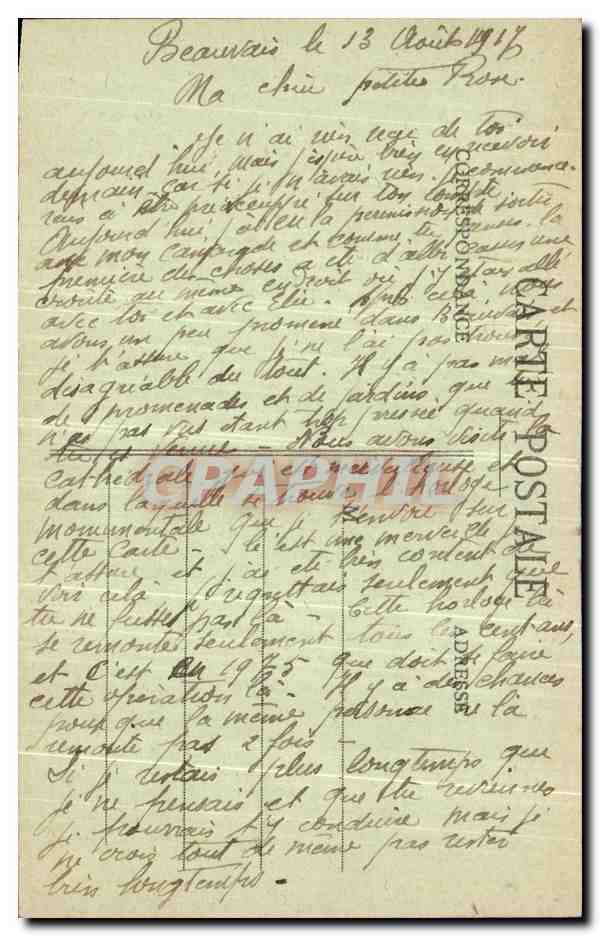 Beauvais le 13 Août 1917
Ma chère petite Rose.
Je n'ai rien reçu de toi
aujourd'hui, mais j'espère bien en recevoir
demain car si je n'avais rien je commence-
rais à être préoccupé sur ton compte
Aujourd'hui, j'ai eu la permission de sortir
avec mon camarade et comme tu penses la
première des choses a été d'aller casser une
croûte au même endroit où j'y étais allé
avec toi et avec Elie. Après cela, nous
avons un peu promené dans Beauvais et
je t'assure que je ne l'ai pas trouvé
disagréable du tout. Il y a pas mal
de promenades et de jardins que
n'as pas vus étant trop pressée quand
tu es venue - Nous avons visité la
Cathédrale qui est merveilleuse et
dans laquelle se trouve l'horloge
monumentale que je t'envoie sur
cette carte - C'est une merveille je
t'assure et j'ai été bien content de
voir cela. Je regrettais seulement que
tu ne fusses pas là - Cette horloge là
se remonte seulement tous les cent ans,
et c'est en 1975 que doit se faire
cette opération là - Il y a des chances
pour que la même personne ne la
remonte pas 2 fois -
Si je restais plus longtemps que
je ne pensais et que tu reviennes
je pourrais t'y conduire mais je
ne crois tout de même pas rester
bien longtemps -
CARTE POSTALE
CORRESPONDANCE
ADRESSE
M
CPAPHIL